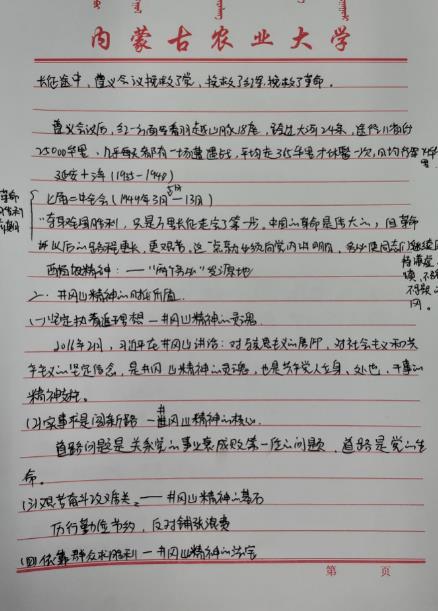 内蒙古农业大学
长征途中，遵义会议挽救了党、挽救了红军、挽救了革命。
遵义会议后，红一方面军翻越山脉18座，跨过大河24条，途经11省份
25000华里，几乎每天都有一场遭遇战，平均走365华里才休整一次，日均行军74华
里
延安十三年（1935-1948）
七届二中全会（1949年3月5日—13日）
“夺取全国胜利，只是万里长征走完了第一步。中国的革命是伟大的，但革命
以后的路程更长，更艰苦。这一点现在必须向党内讲明白，务必使同志们继续
西柏坡精神：——“两个务必”发源地
二、井冈山精神的时代价值
(一)坚定执着追理想—井冈山精神的灵魂
2016年2月，习近平在井冈山讲话：对马克思主义的信仰，对社会主义和共
产主义的坚定信念，是井冈山精神的灵魂，也是共产党人
精神支柱。
(2)实事求是闯新路—井冈山精神的核心
道路问题是关系党的事业兴衰成败第一位的问题，道路是党的生
命。
(3)艰苦奋斗攻难关——井冈山精神的基石
厉行勤俭节约，反对铺张浪费
(四)依靠群众求胜利—井冈山精神的
第 页